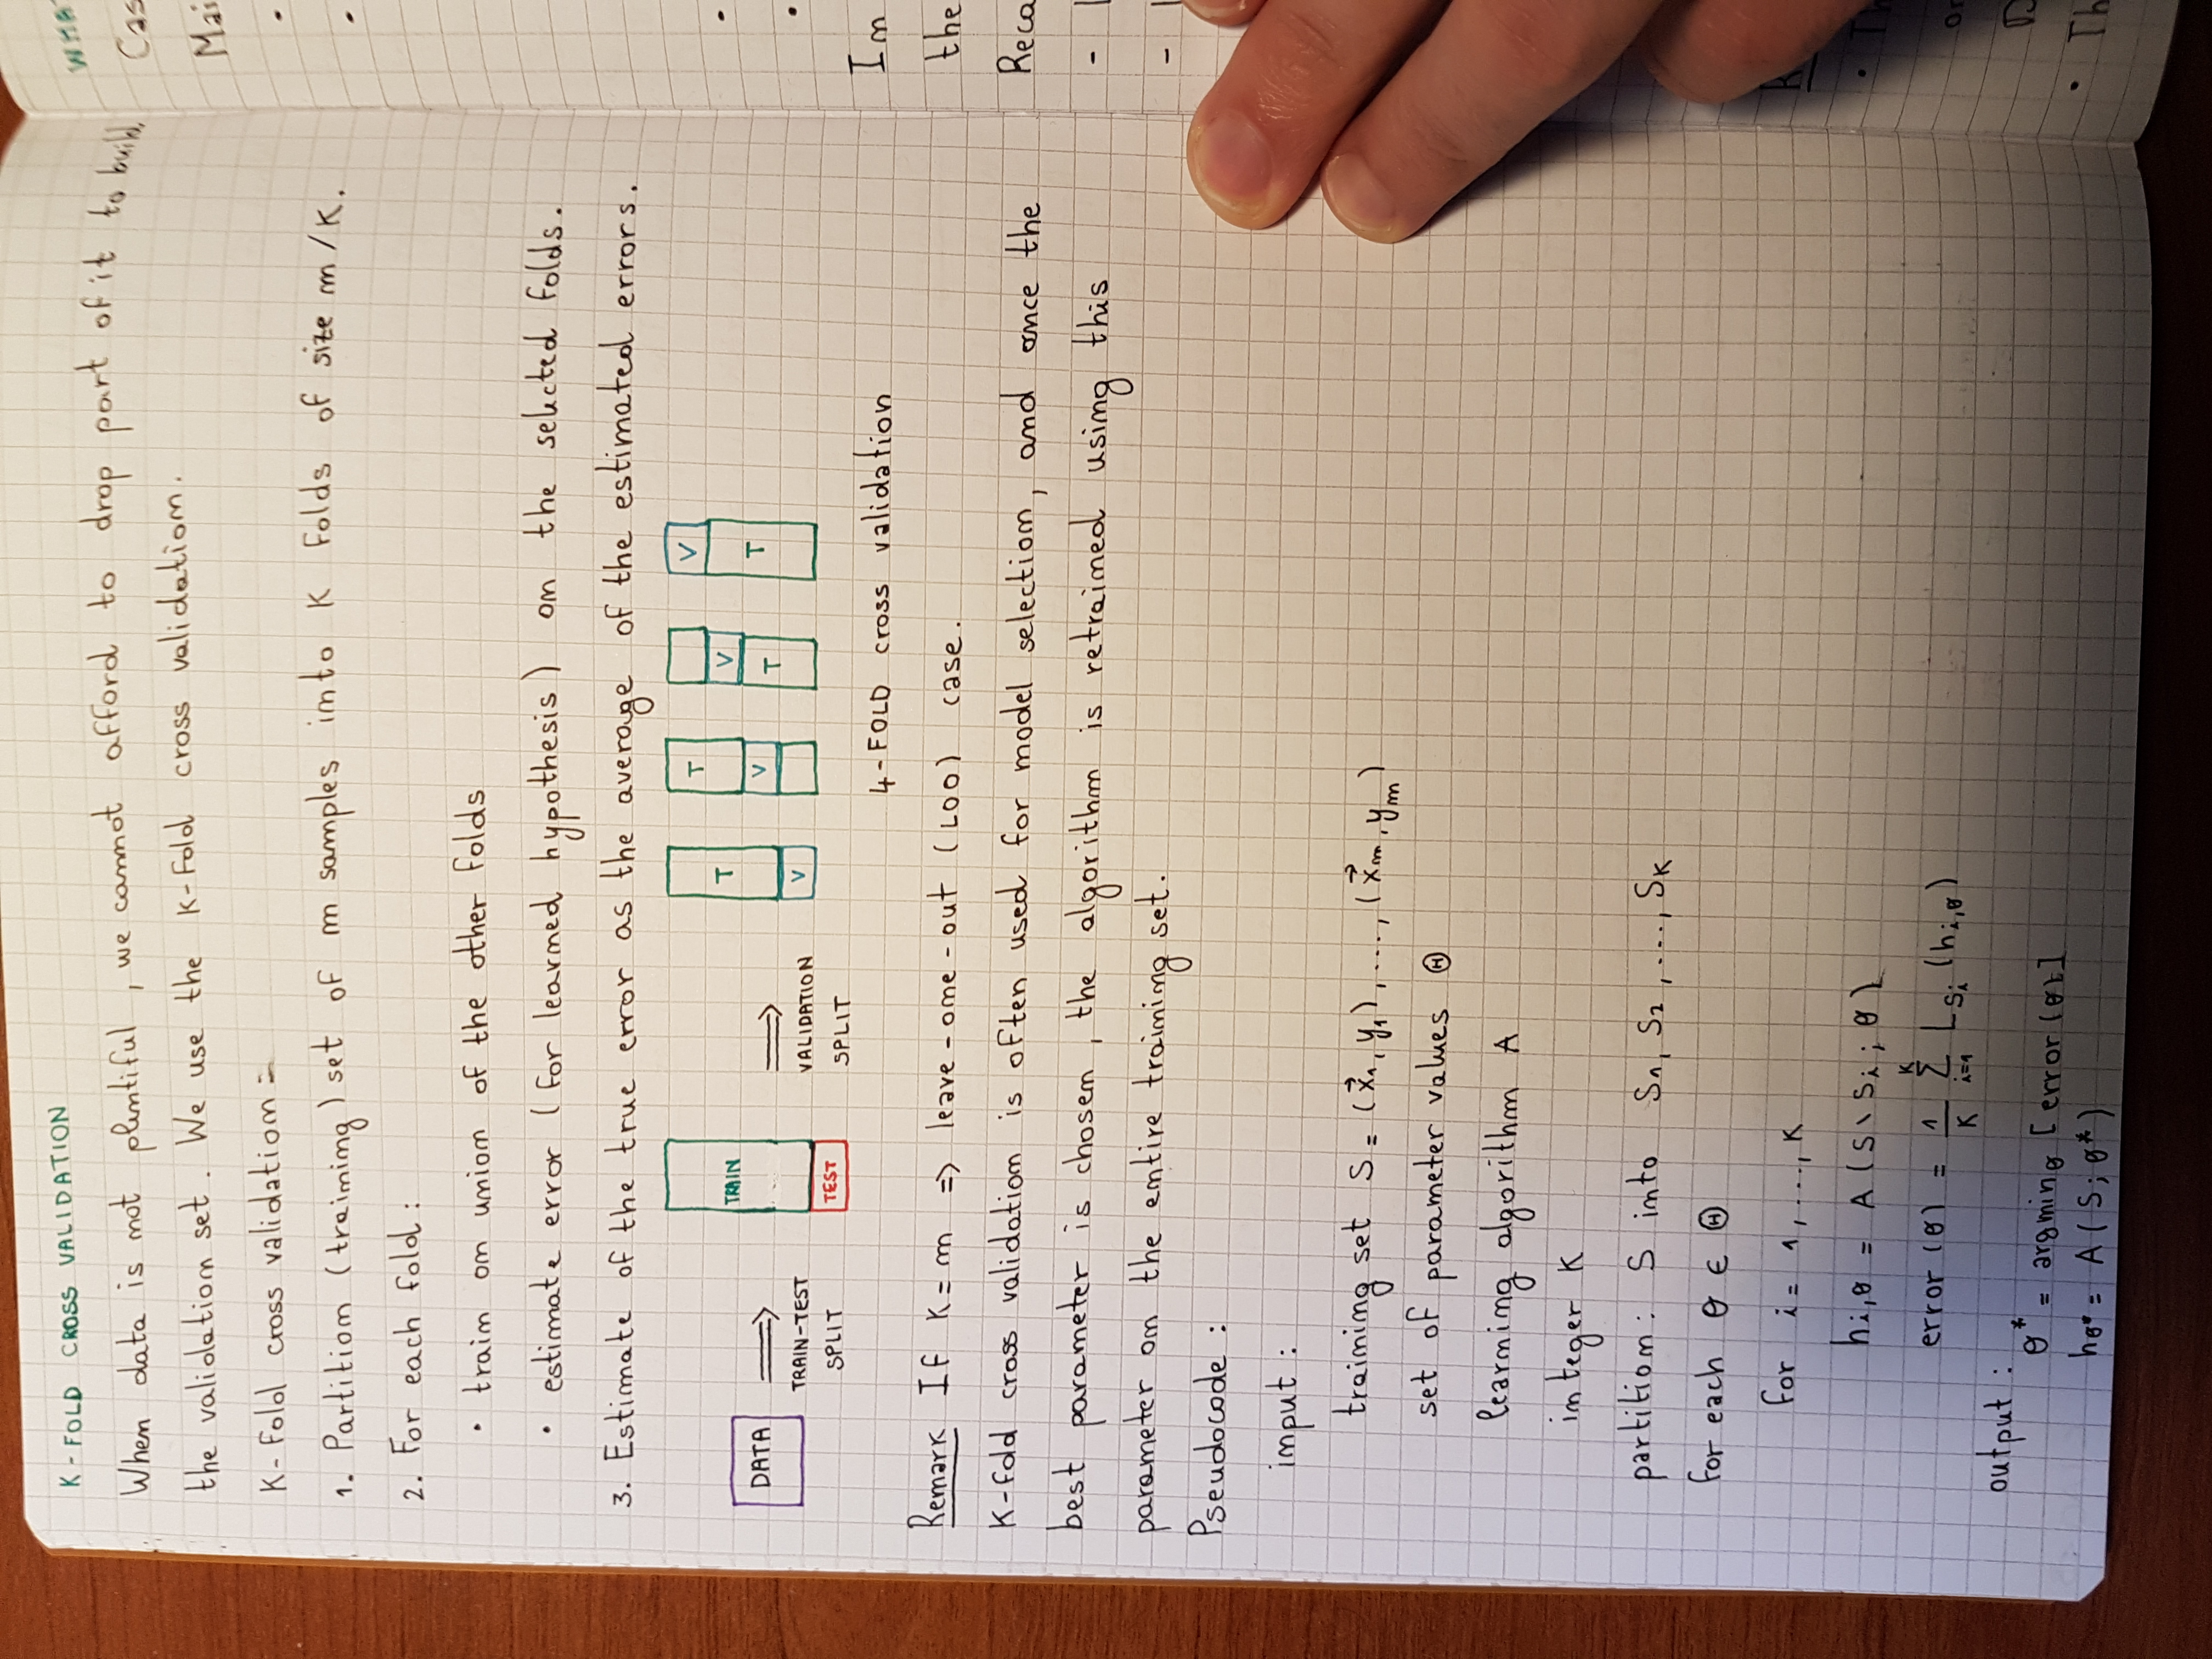 K-FOLD CROSS VALIDATION
When data is not plentiful, we cannot afford to drop part of it to build
the validation set. We use the K-Fold cross validation.
K-Fold cross validation =
1. Partition (training) set of m samples into K Folds of size m/K.
2. For each fold:
• train on union of the other folds
• estimate error (for learned hypothesis) on the selected folds.
3. Estimate of the true error as the average of the estimated errors.
DATA
TRAIN-TEST
SPLIT
TRAIN
TEST
VALIDATION
SPLIT
T
V
T
V
V
T
V
T
4-FOLD cross validation
Remark If K = m => leave-one-out (LOO) case.
K-fold cross validation is often used for model selection, and once the
best parameter is chosen, the algorithm is retrained using this
parameter on the entire training set.
Pseudocode:
input:
training set S = (x⃗₁, y₁), ..., (x⃗ₘ, yₘ)
set of parameter values Θ
learning algorithm A
integer K
partition: S into S₁, S₂, ..., S_K
for each θ ∈ Θ
for i = 1, ..., K
h_{i,θ} = A(S \ S_i; θ)
error(θ) = 1/K Σ_{i=1}^{K} L_{S_i}(h_{i,θ})
output:
θ* = argmin_θ [error(θ)]
h_{θ*} = A(S; θ*)
Im
the
Th